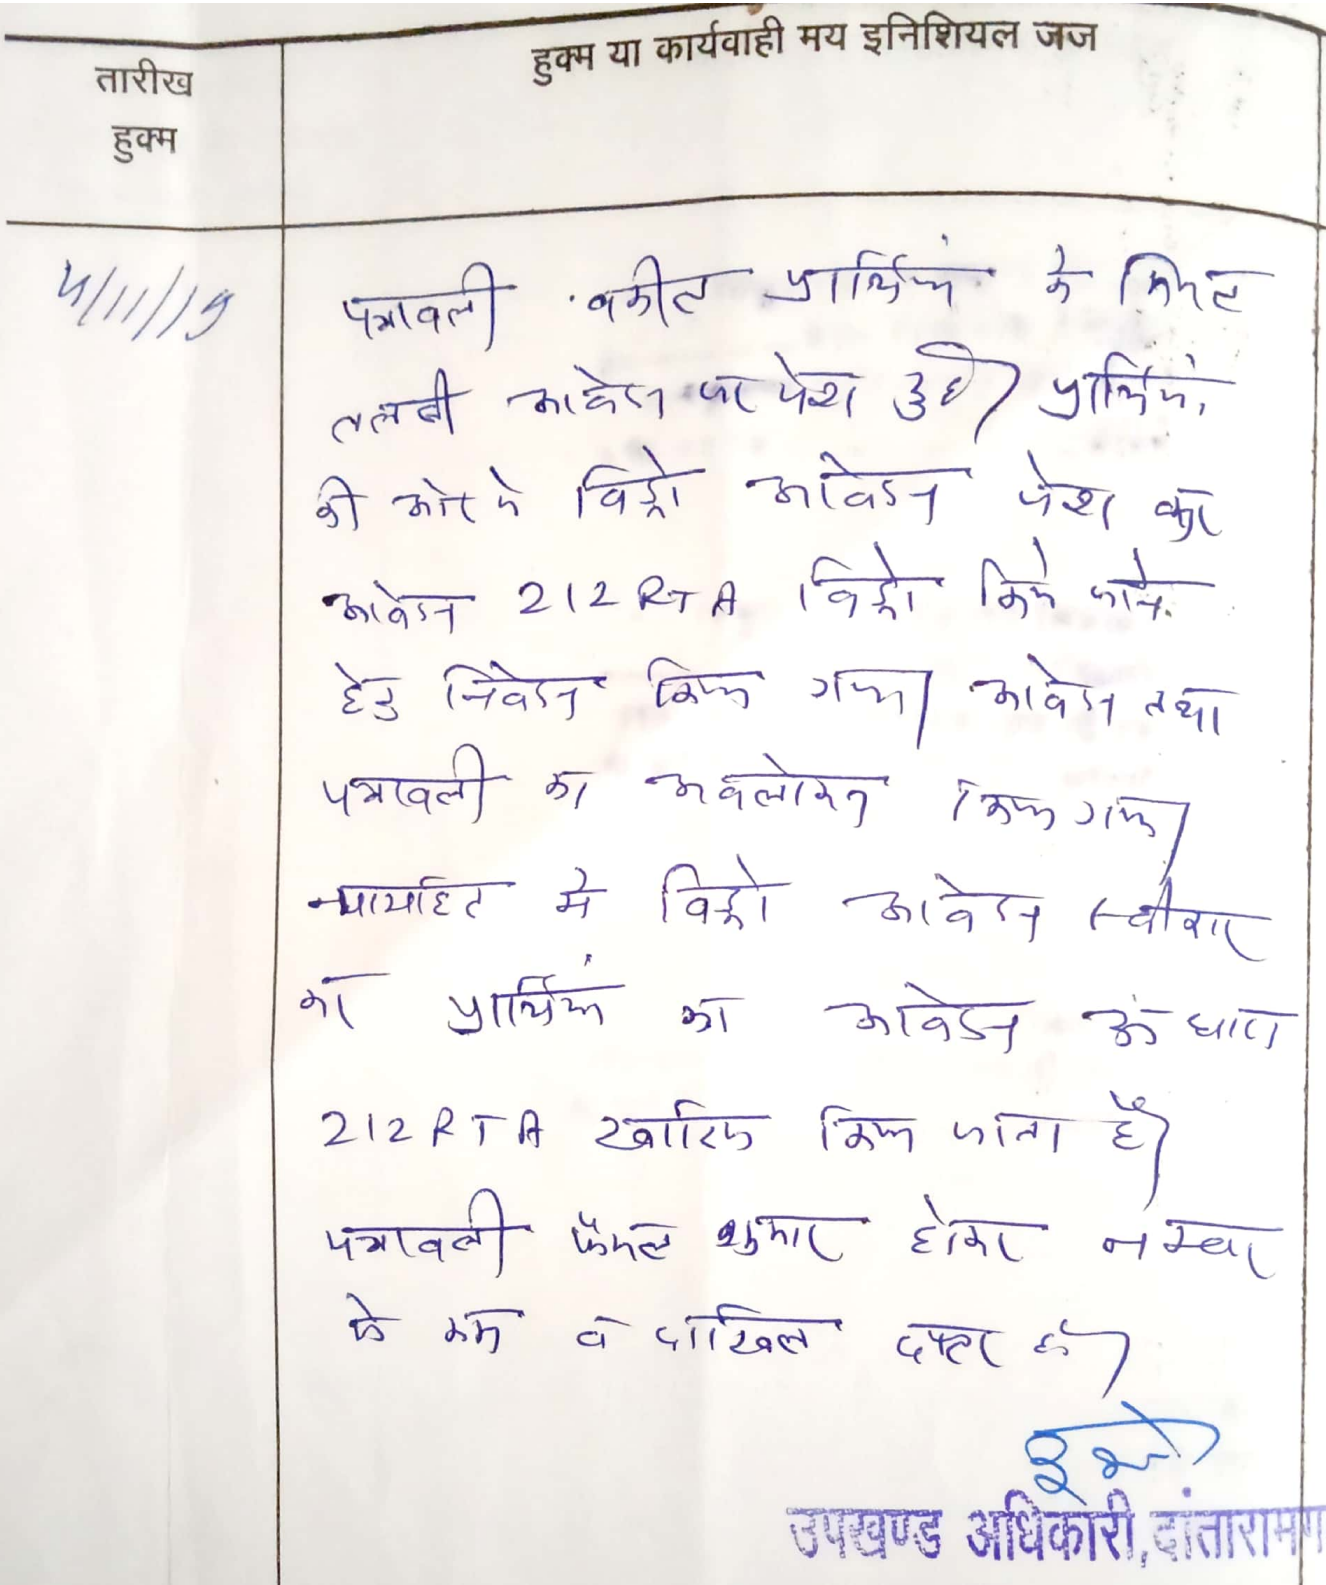 तारीख
हुक्म
हुक्म या कार्यवाही मय इनिशियल जज
4/11/19
पत्रावली वकील प्रार्थिया के
तलबी आवेदन पर पेश हुई। प्रार्थिया
की ओर से विड्रो आवेदन पेश कर
आवेदन 212 RTA विड्रो किये जाने
हेतु निवेदन किया गया। आवेदन तथा
पत्रावली का अवलोकन किया गया।
न्यायहित मे विड्रो आवेदन स्वीकार
कर प्रार्थिया का आवेदन अं धारा
212 RTA खारिज किया जाता है।
पत्रावली फैसल शुमार होकर नम्बर
से कम व दाखिल दफ्तर हो।
उपखण्ड अधिकारी, दांतारामग